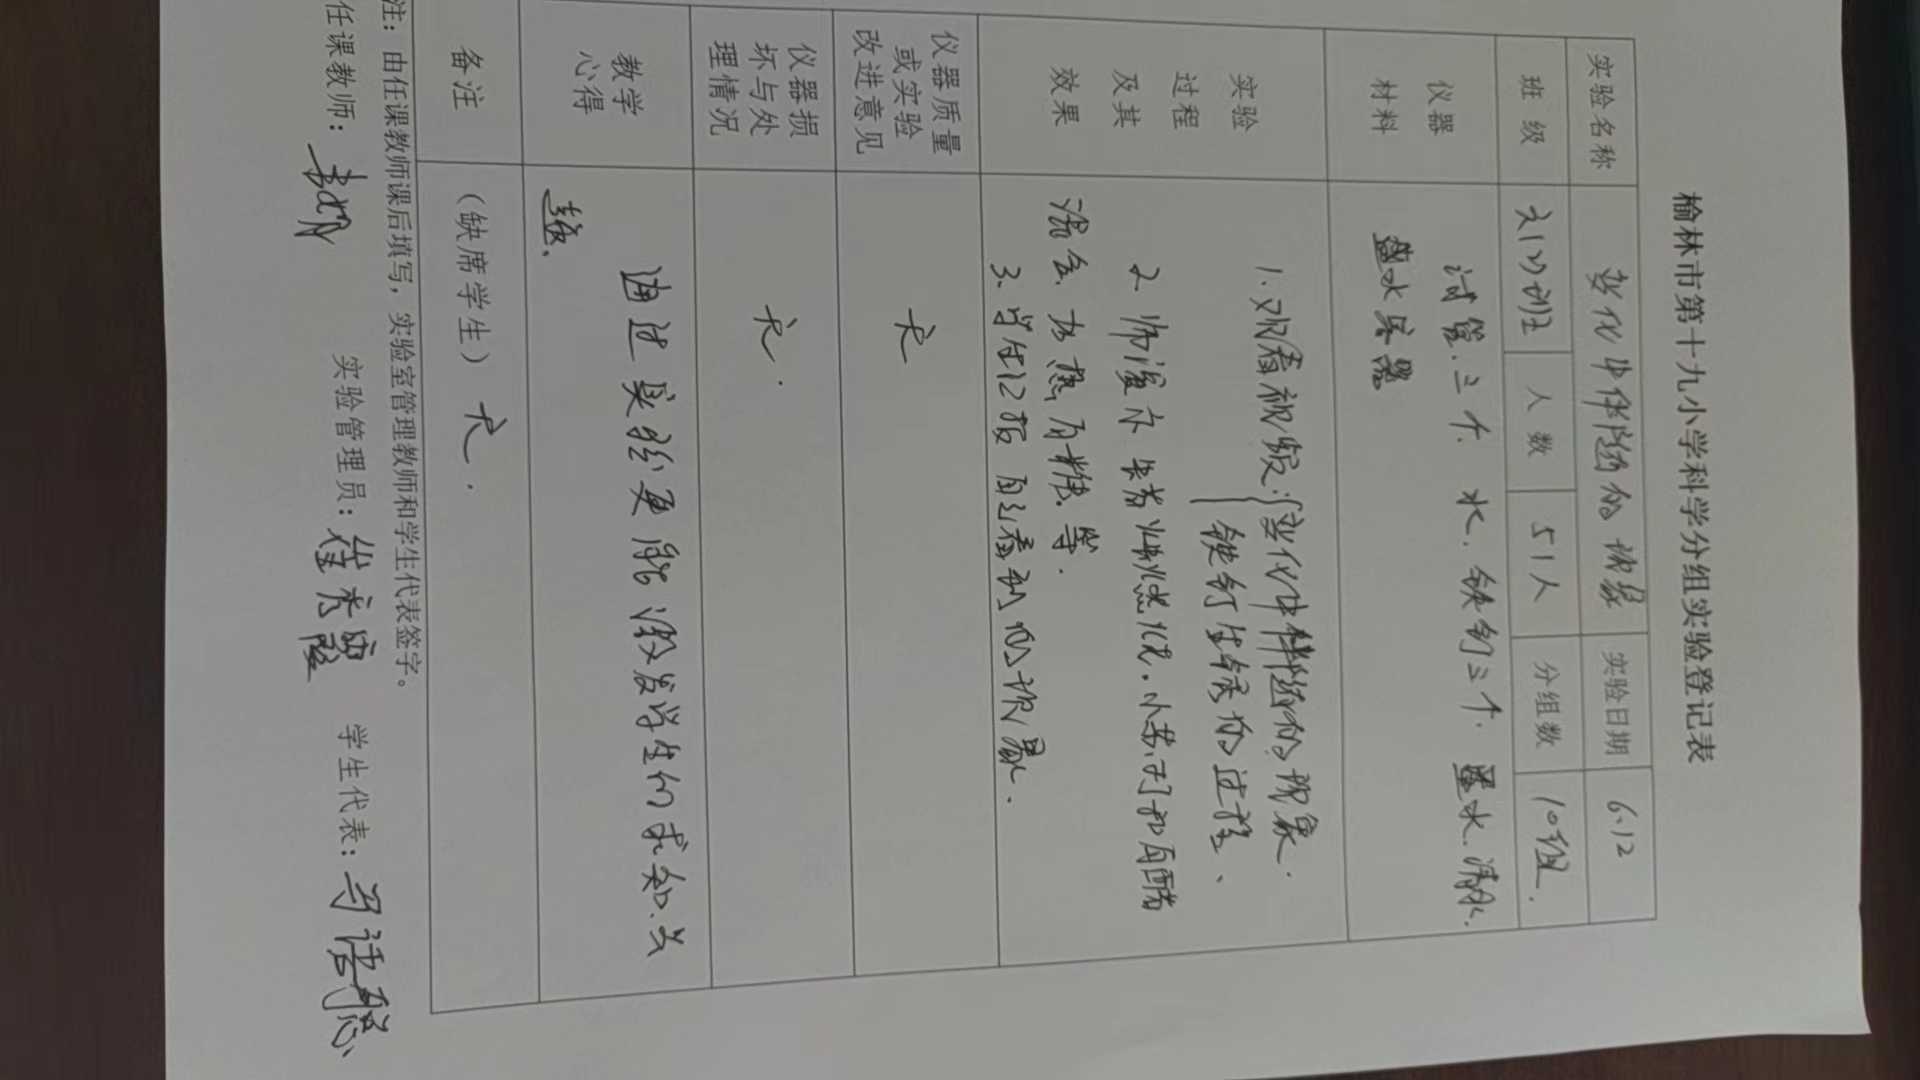 榆林市第十九小学科学分组实验登记表
实验名称 变化中伴随的现象 实验日期 6.12
班级 六(2)班 人数 51人 分组数 10组.
仪器材料 试管.三个. 水. 铁钉三个. 墨水. 清水.
盛水容器
实验过程及其效果 1.观看视频:变化中伴随的现象.
铁钉生锈的过程、
2. 师演示 蜡烛燃烧.小苏打和白醋
混合.加热白糖.等.
3.学生汇报自己看到的现象.
仪器质量或实验改进意见 无
仪器损坏与处理情况 无.
教学心得 通过实验更能激发学生的求知.兴
趣.
备注 (缺席学生) 无.
注:由任课教师课后填写,实验室管理教师和学生代表签字。
任课教师: 实验管理员: 学生代表: